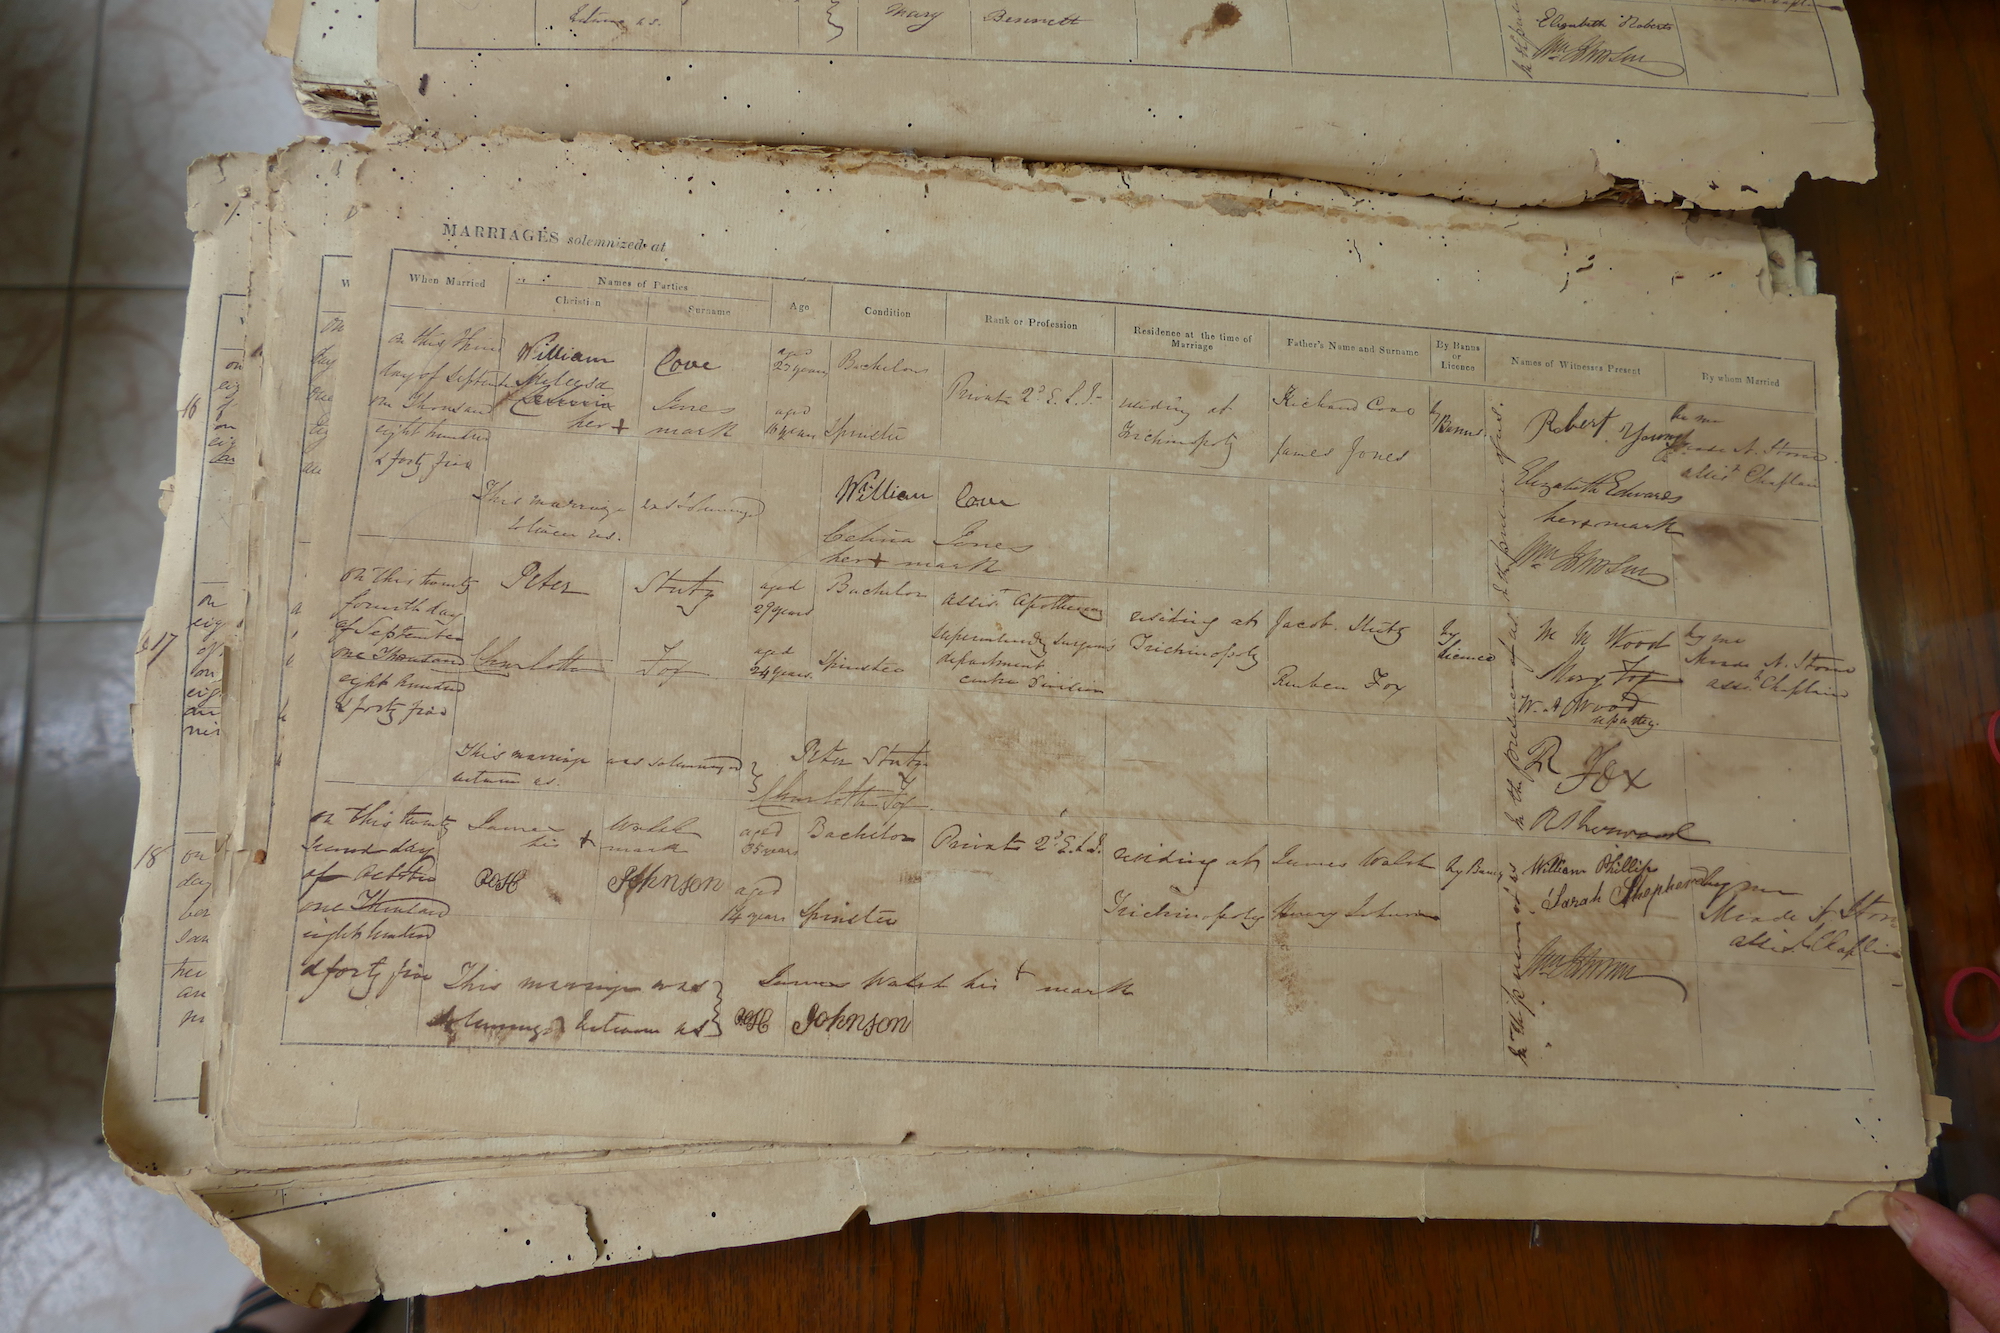 Mary Bennett
Elizabeth Roberts
Wm Johnson
MARRIAGES solemnized at
When Married
Names of Parties
Christian
Surname
Age
Condition
Rank or Profession
Residence at the time of Marriage
Father's Name and Surname
By Banns or Licence
Names of Witnesses Present
By whom Married
on this
day of September
one Thousand
eight hundred
& forty five
William
Cove
her + mark
Jones
aged
27 years
aged
16 years
Bachelor
Spinster
Private 2d E. L. I.
residing at
Trichinopoly
Richard Cove
James Jones
by Banns
Robert Young
Elizabeth Edwards
her x mark
Wm Johnson
by me
Meade N. Stone
assist Chaplain
This marriage was solemnized
between us.
William Cove
Celina Jones
her + mark
17
on this twenty
fourth day
of September
one Thousand
eight hundred
& forty five
Peter
Stutz
Charlotte
Fox
aged
29 years
aged
24 years
Bachelor
Spinster
assist Apothecary
superintendg surgeon's
department
centre Division
residing at
Trichinopoly
Jacob Stutz
Reuben Fox
by
Licence
W M Wood
Mary Fox
W. A Wood
R Fox
R Sherwood
by me
Meade N. Stone
assist Chaplain
This marriage was solemnized
between us.
Peter Stutz
Charlotte Fox
18
on this twenty
second day
of October
one Thousand
eight hundred
& forty five
James
his + mark
Walsh
ROSE
JOHNSON
aged
35 years
aged
14 years
Bachelor
Spinster
Private 2d E. L. I.
residing at
Trichinopoly
James Walsh
Henry Johnson
by Banns
William Phillips
Sarah Shepherd
Wm Johnson
by me
Meade N. Stone
assist Chaplain
In the presence of us
This marriage was
solemnized between us
James Walsh his + mark
ROSE JOHNSON